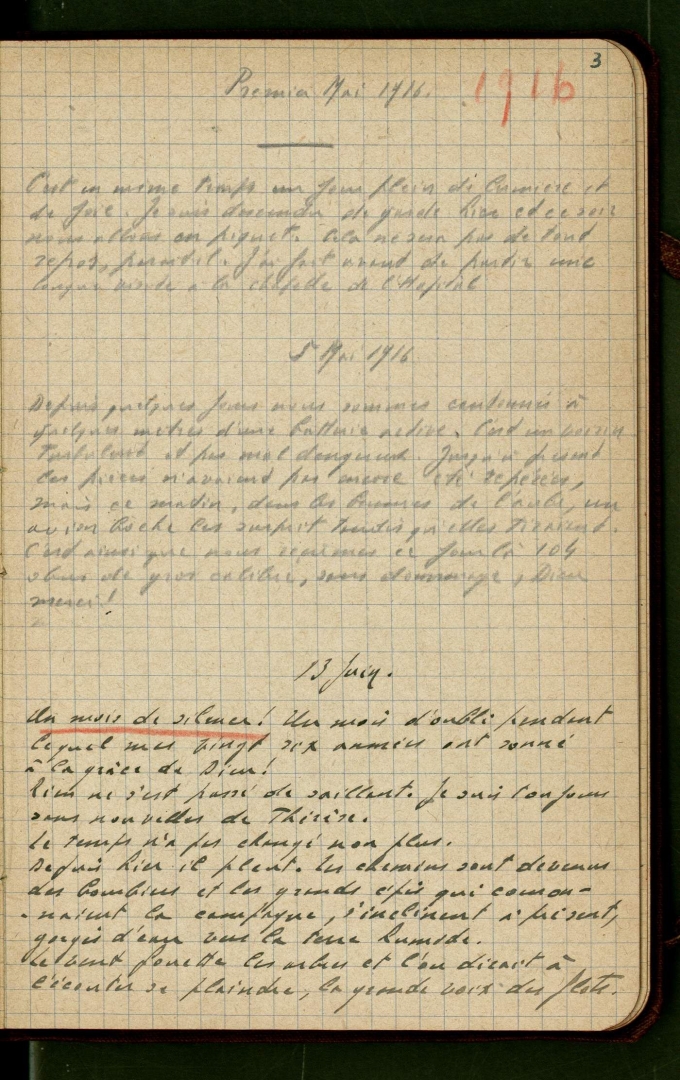 3
Premier Mai 1916.
1916
C'est en même temps un jour plein de lumière et
de joie. Je suis descendu de garde hier et ce soir
nous allons en piquet. Cela ne sera pas de tout
repos, parait-il. J'ai fait avant de partir une
longue visite à la chapelle de l'Hopital
5 Mai 1916
Depuis quelques jours nous sommes cantonnés à
quelques mètres d'une batterie active. C'est un voisin
turbulent et pas mal dangereux. Jusqu'à présent
les pièces n'avaient pas encore été repérées,
mais ce matin, dans les brumes de l'aube, un
avion boche les surprit tandis qu'elles tiraient.
C'est ainsi que nous reçumes ce jour là 104
obus de gros calibre, sans dommage, Dieu
merci!
13 Juin.
Un mois de silence! Un mois d'oubli pendant
lequel mes vingt six années ont sonné
à la grâce de Dieu!
Rien ne s'est passé de saillant. Je suis toujours
sans nouvelles de Thérèse.
Le temps n'a pas changé non plus.
Depuis hier il pleut. Les chemins sont devenus
des bourbiers et les grands épis qui couron-
-naient la campagne, s'inclinent à présent,
gorgés d'eau vers la terre humide.
Le vent fouette les arbres et l'on dirait à
l'écouter se plaindre, la grande voix des flots.